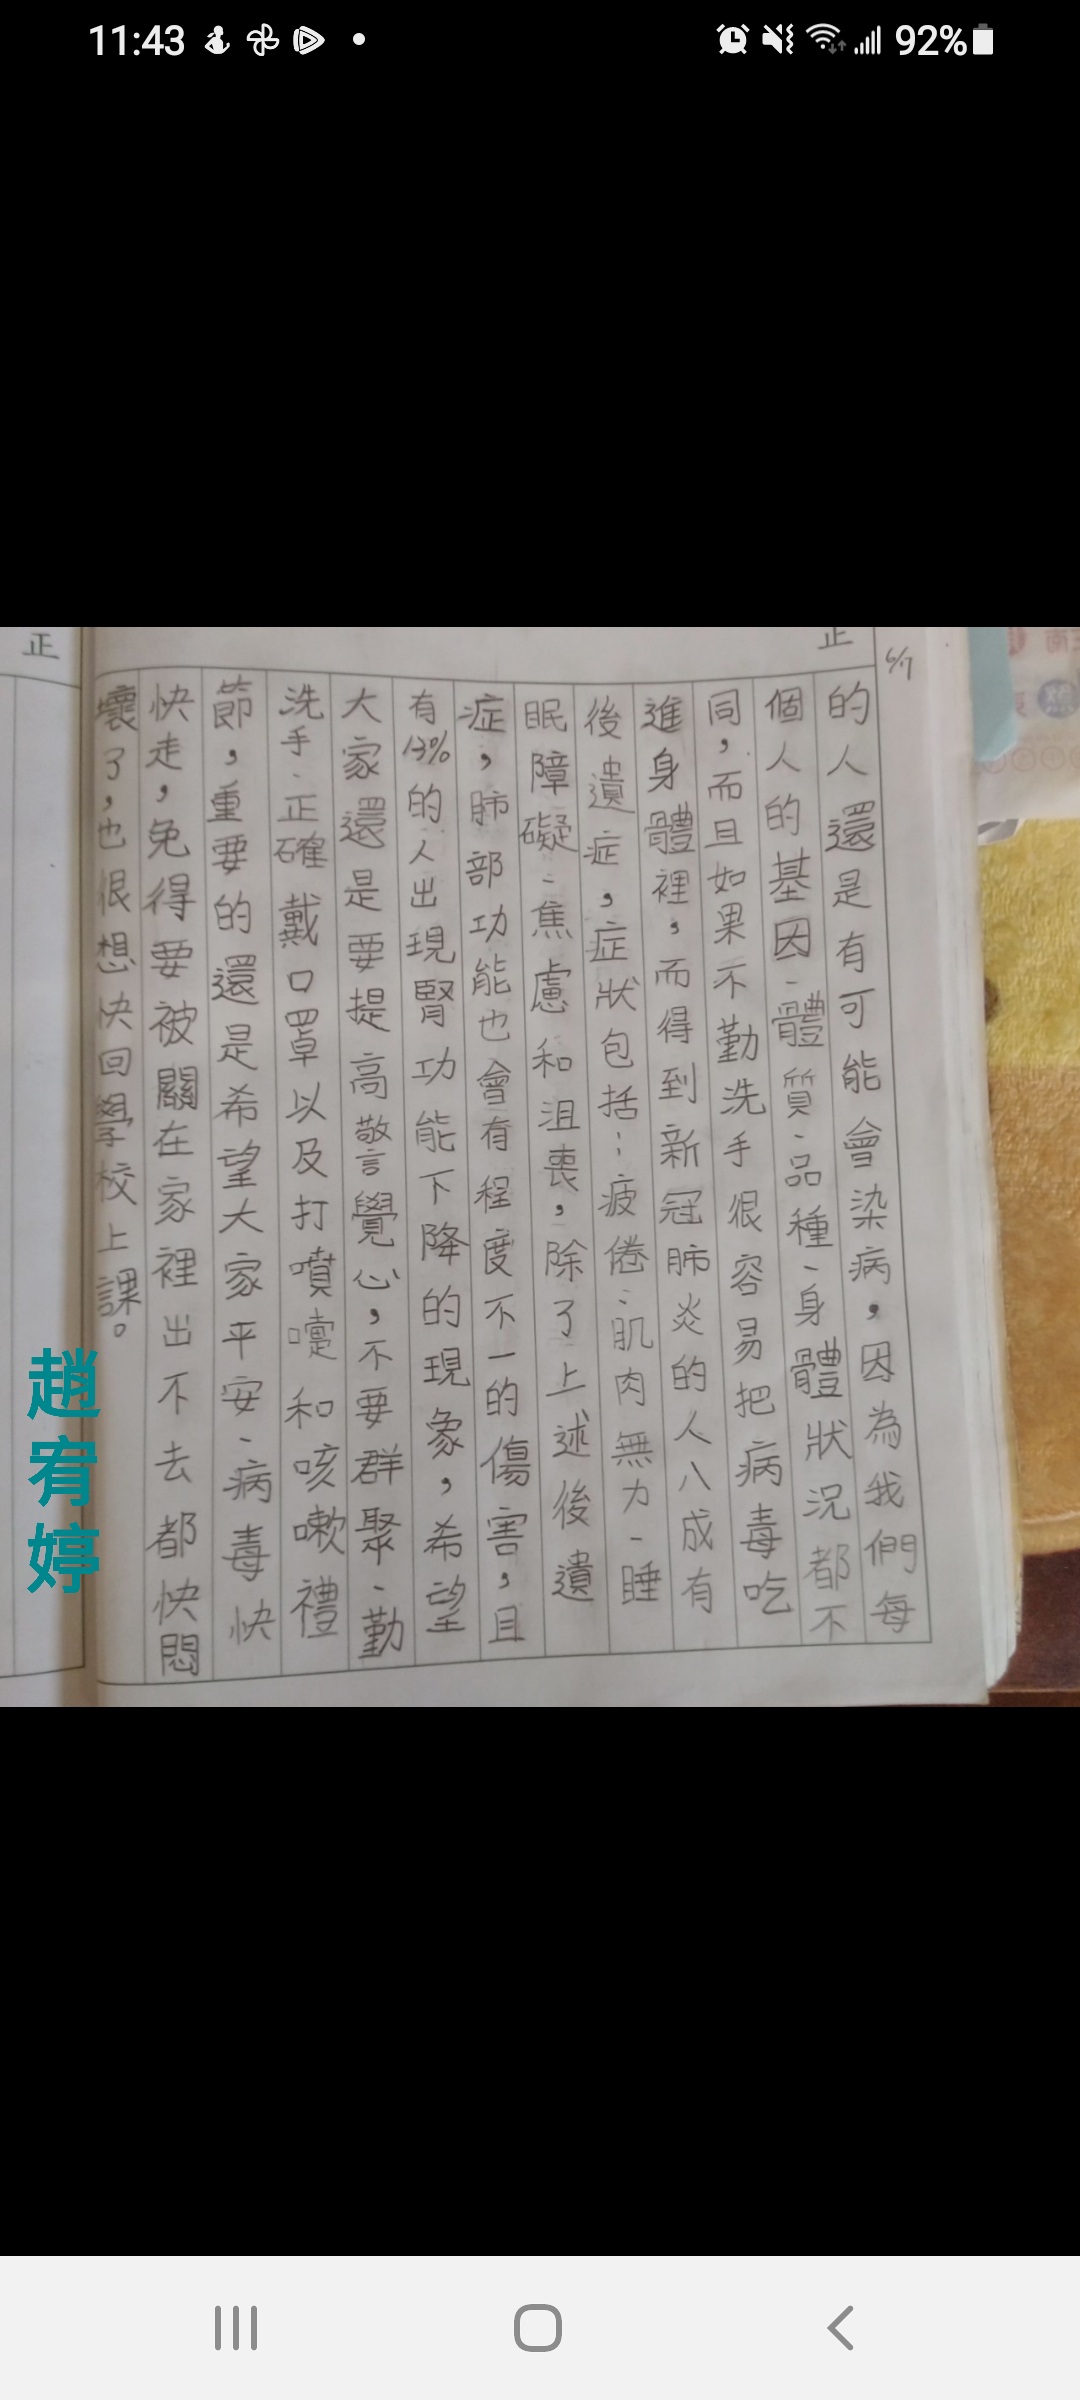 11:43
92%
正
正
6/7
的人還是有可能會染病，因為我們每
個人的基因、體質、品種、身體狀況都不
同，而且如果不勤洗手很容易把病毒吃
進身體裡，而得到新冠肺炎的人八成有
後遺症，症狀包括：疲倦、肌肉無力、睡
眠障礙、焦慮和沮喪，除了上述後遺
症，肺部功能也會有程度不一的傷害，且
有13%的人出現腎功能下降的現象，希望
大家還是要提高警覺心，不要群聚、勤
洗手、正確戴口罩以及打噴嚏和咳嗽禮
節，重要的還是希望大家平安、病毒快
快走，免得要被關在家裡出不去都快悶
壞了，也很想快回學校上課。
趙宥婷